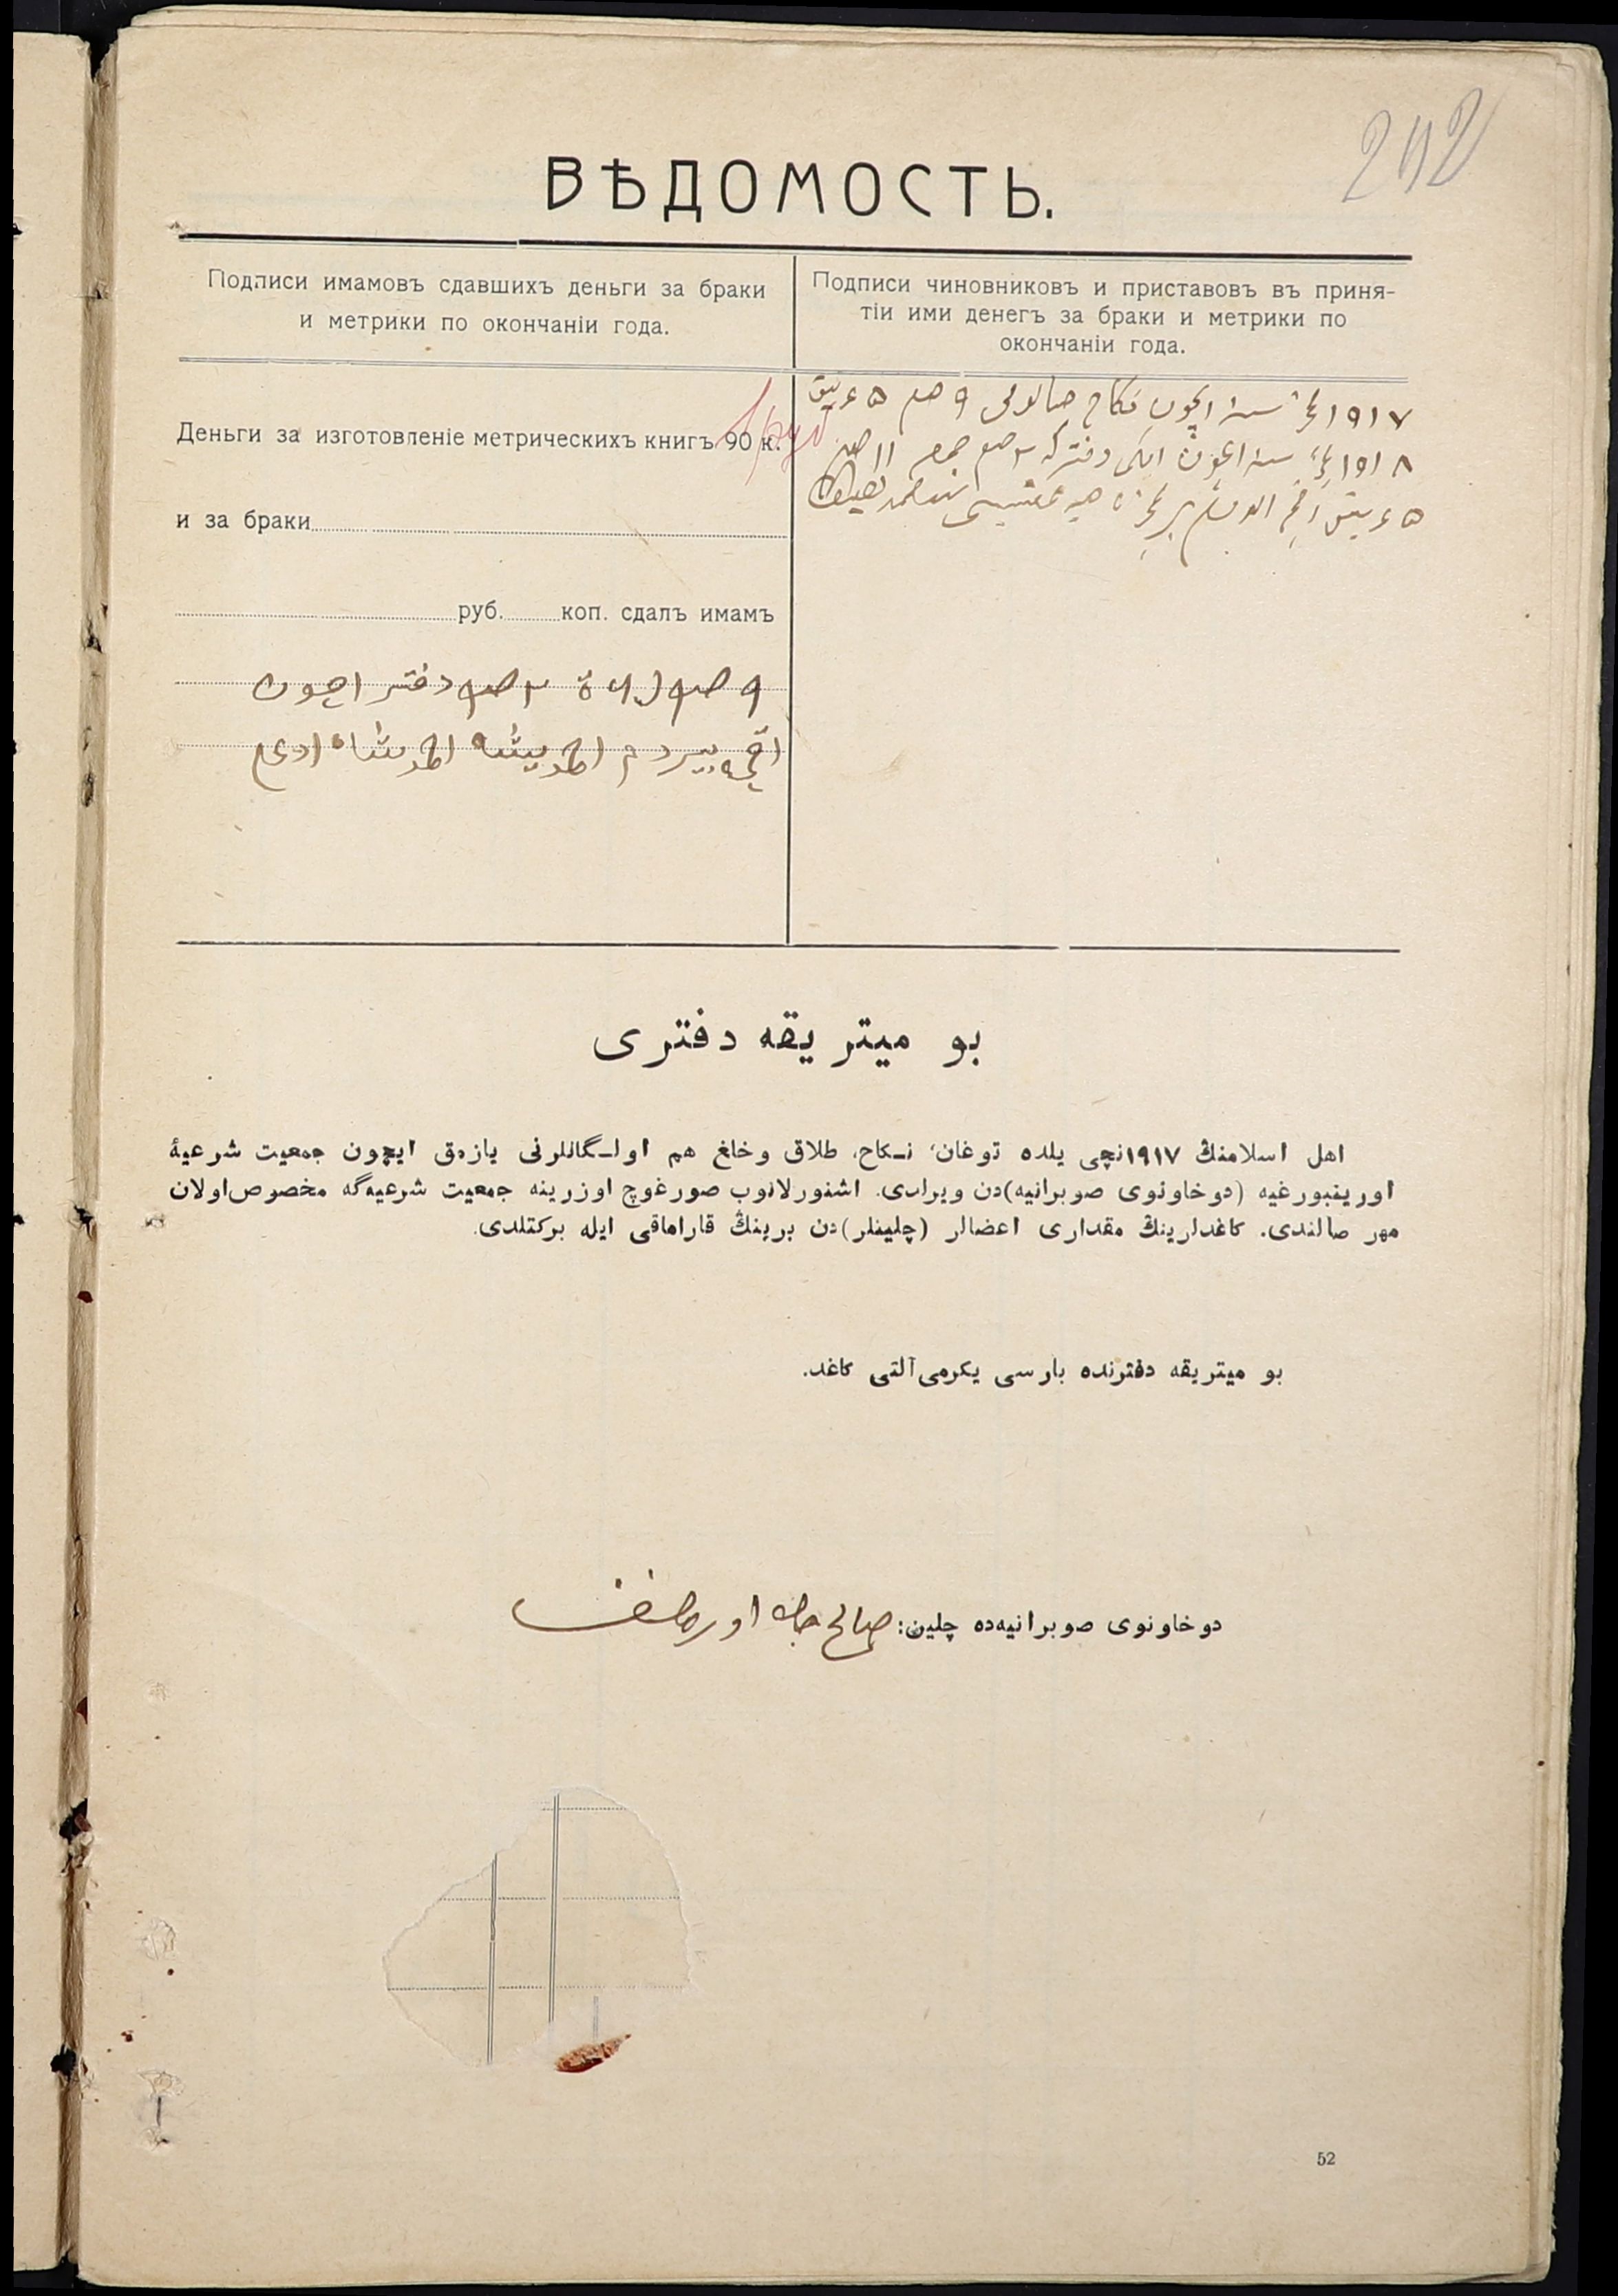 242
ВѢДОМОСТЬ.
Подписи имамовъ сдавшихъ деньги за браки
и метрики по окончаніи года.
Подписи чиновниковъ и приставовъ въ приня-
тіи ими денегъ за браки и метрики по
окончаніи года.
Деньги за изготовленіе метрическихъ книгъ 90 к.
и за браки
руб. коп. сдалъ имамъ
دفتر اچون
بيردم
١٩١٧ نچی سنه ایچون نکاح صالومی ٩
١٩١٨ نچی سنه ایچون ایکی دفترگه
بو میتریقه دفتری
اهل اسلامنڭ ١٩١٧نچی یلده توغان، نـكاح، طلاق وخلغ هم اولـگانلرنی یازمق ایچون جمعیت شرعیۀ
اورینبورغیه (دوخاونوی صوبرانیه)دن ویرلدی. اشنورلانوب صورغوچ اوزرینه جمعیت شرعیه‌گه مخصوص اولان
مهر صالندی. كاغدلرینڭ مقداری اعضالر (چلینلر)دن برینڭ قاراماقی ایله بركتلدی.
بو میتریقه دفترنده بارسی یكرمی آلتی كاغد.
دوخاونوی صوبرانیه‌ده چلین: صالح جان اورمانف
52